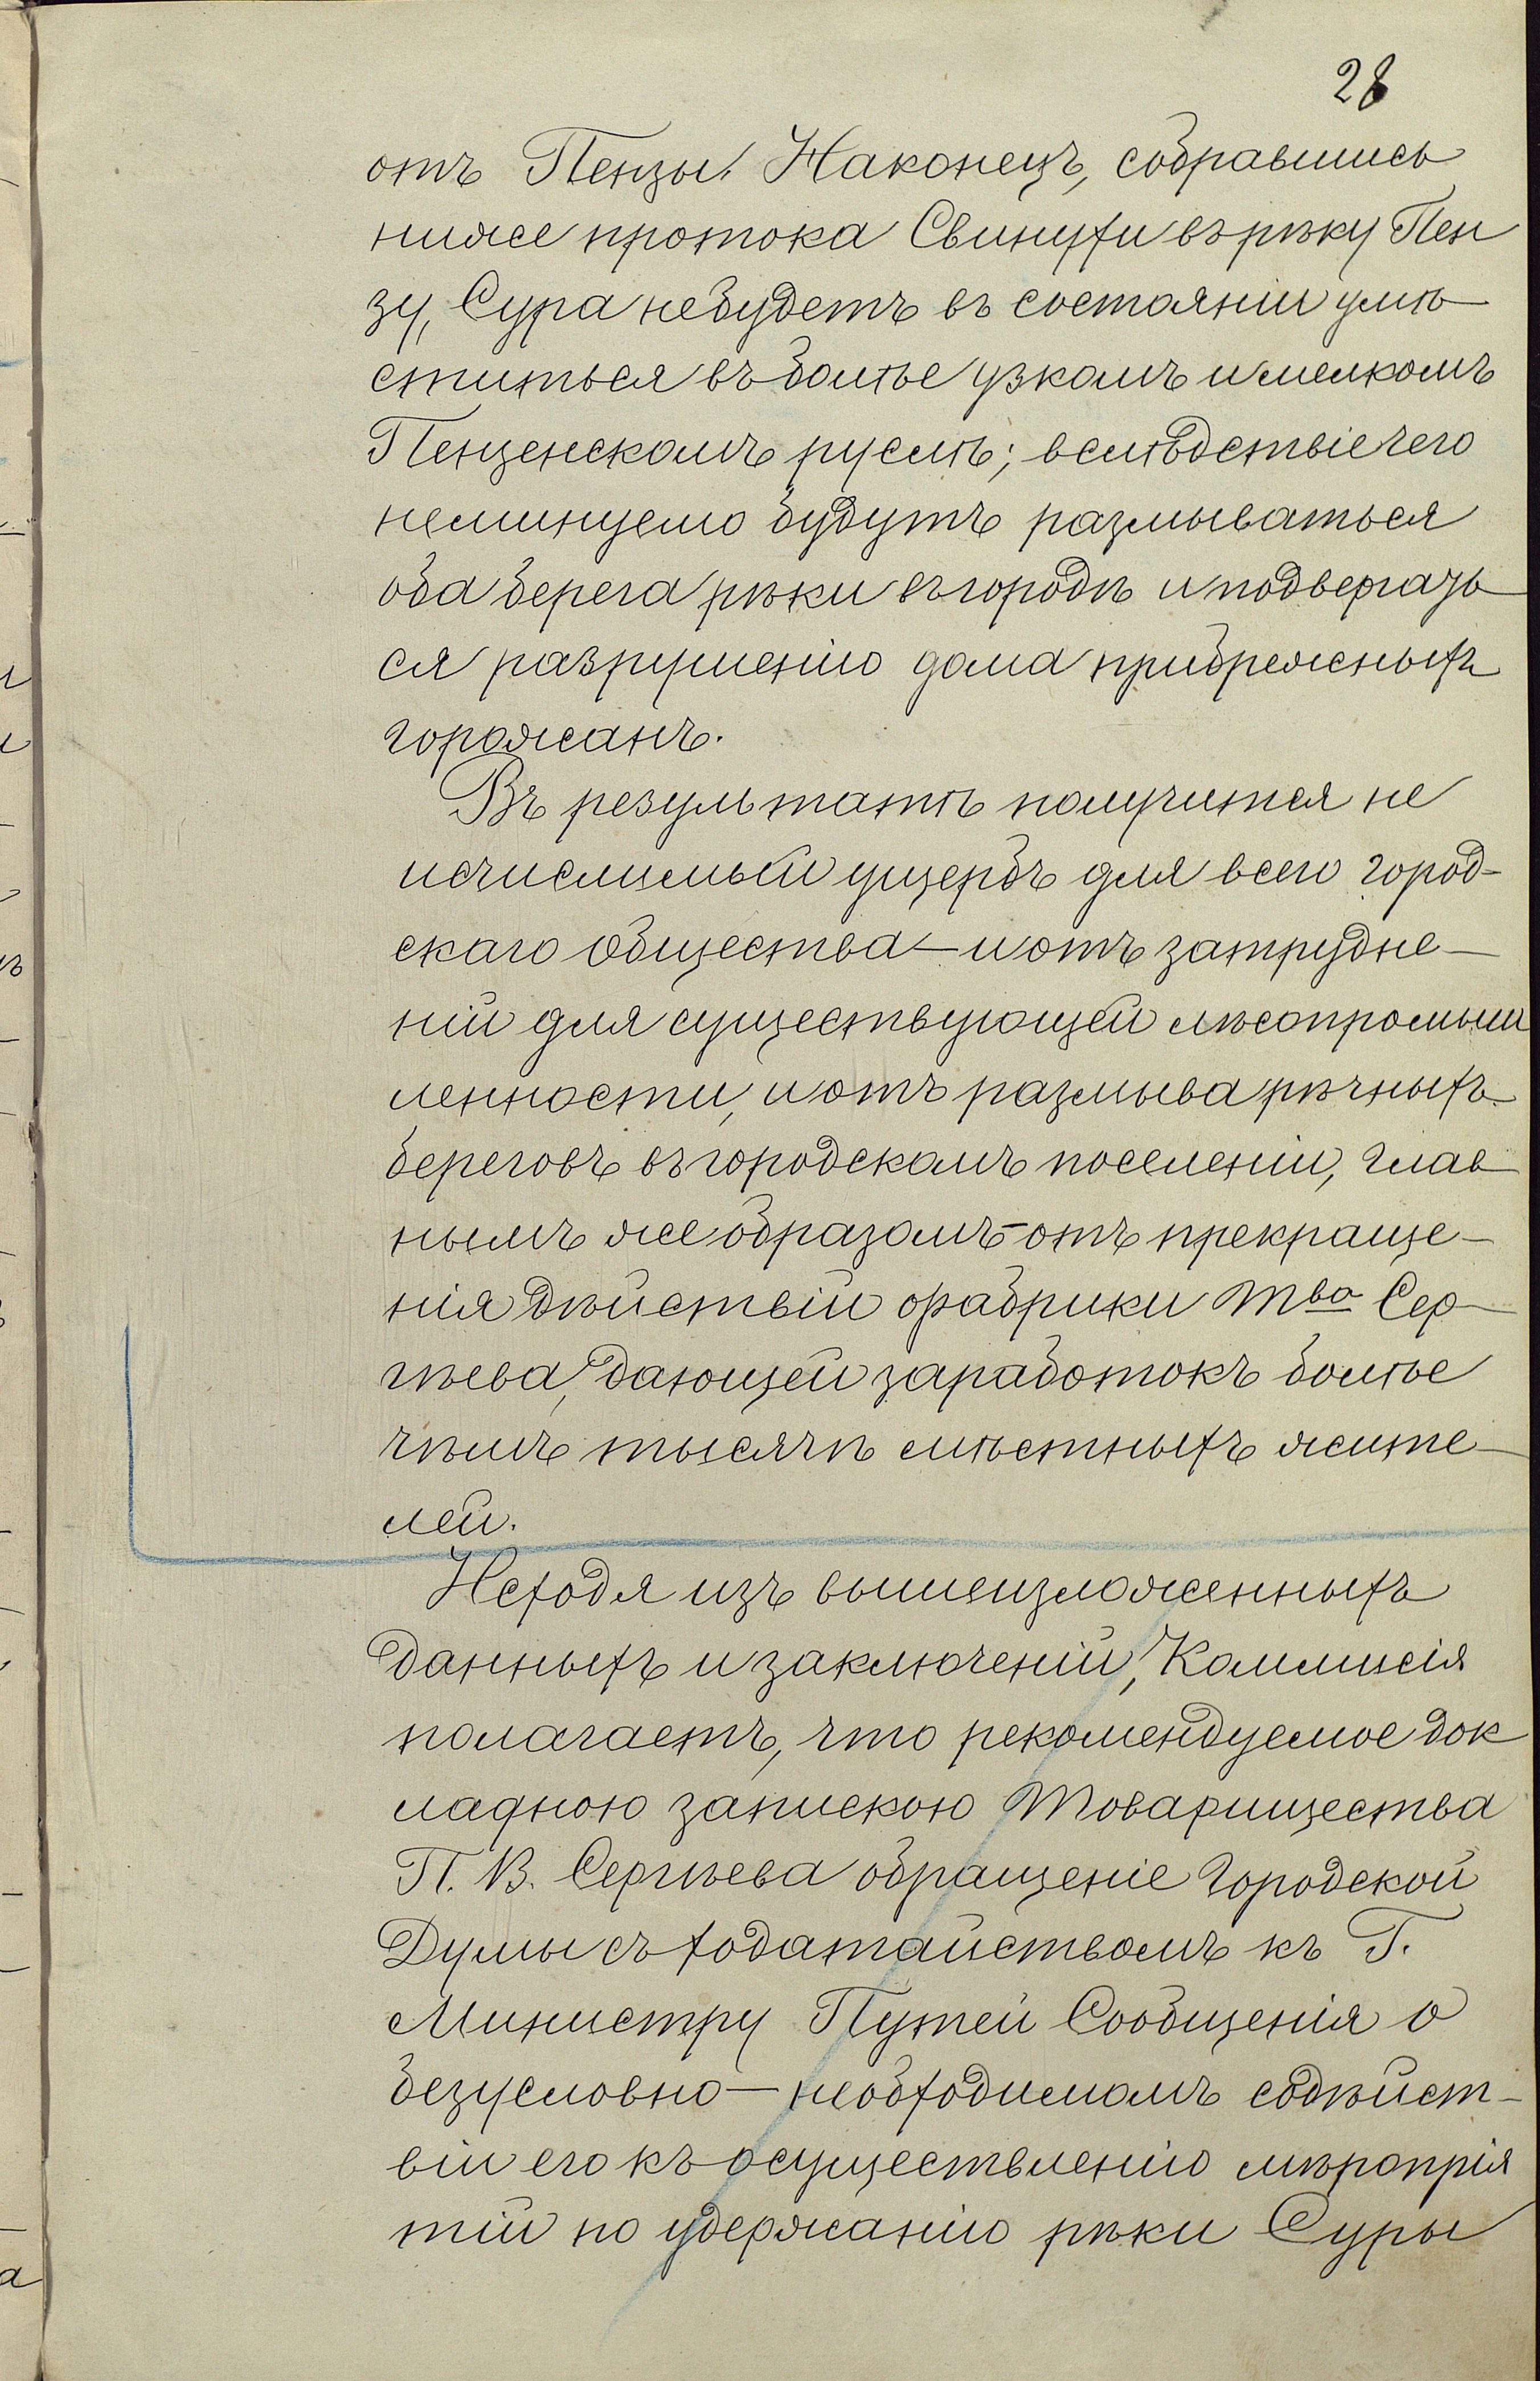 28
отъ Пензы. Наконецъ, собравшись
ниже протока Свинухи въ рѣку Пен
зу, Сура небудетъ въ состоянiи умѣ-
ститься въ болѣе узкомъ и мелкомъ
Пензенскомъ руслѣ; вслѣдствiе чего
неминуемо будутъ размываться
оба берега рѣки въ городѣ и подвергать
ся разрушенiю дома прибрежныхъ
горожанъ.
Въ результатѣ получится не
исчислимый ущербъ для всего город-
скаго общества – и отъ затрудне-
нiй для существующей лѣсопромыш
ленности, и отъ размыва рѣчныхъ
береговъ въ городскомъ поселенiи, глав
нымъ же образомъ – отъ прекраще-
нiя дѣйствiй фабрики Тва Сер-
гѣева, дающей заработокъ болѣе
чѣмъ тысячѣ мѣстныхъ жите-
лей.
Исходя изъ вышеизложенныхъ
данныхъ и заключенiй, Коммисiя
полагаетъ, что рекомендуемое док
ладною запискою Товарищества
П. В. Сергѣева обращенiе Городской
Думы съ ходатайствомъ къ Г.
Министру Путей Сообщенiя о
безусловно – необходимомъ содѣйст-
вiи его къ осуществленiю мѣропрiя
тiй по удержанiю рѣки Суры